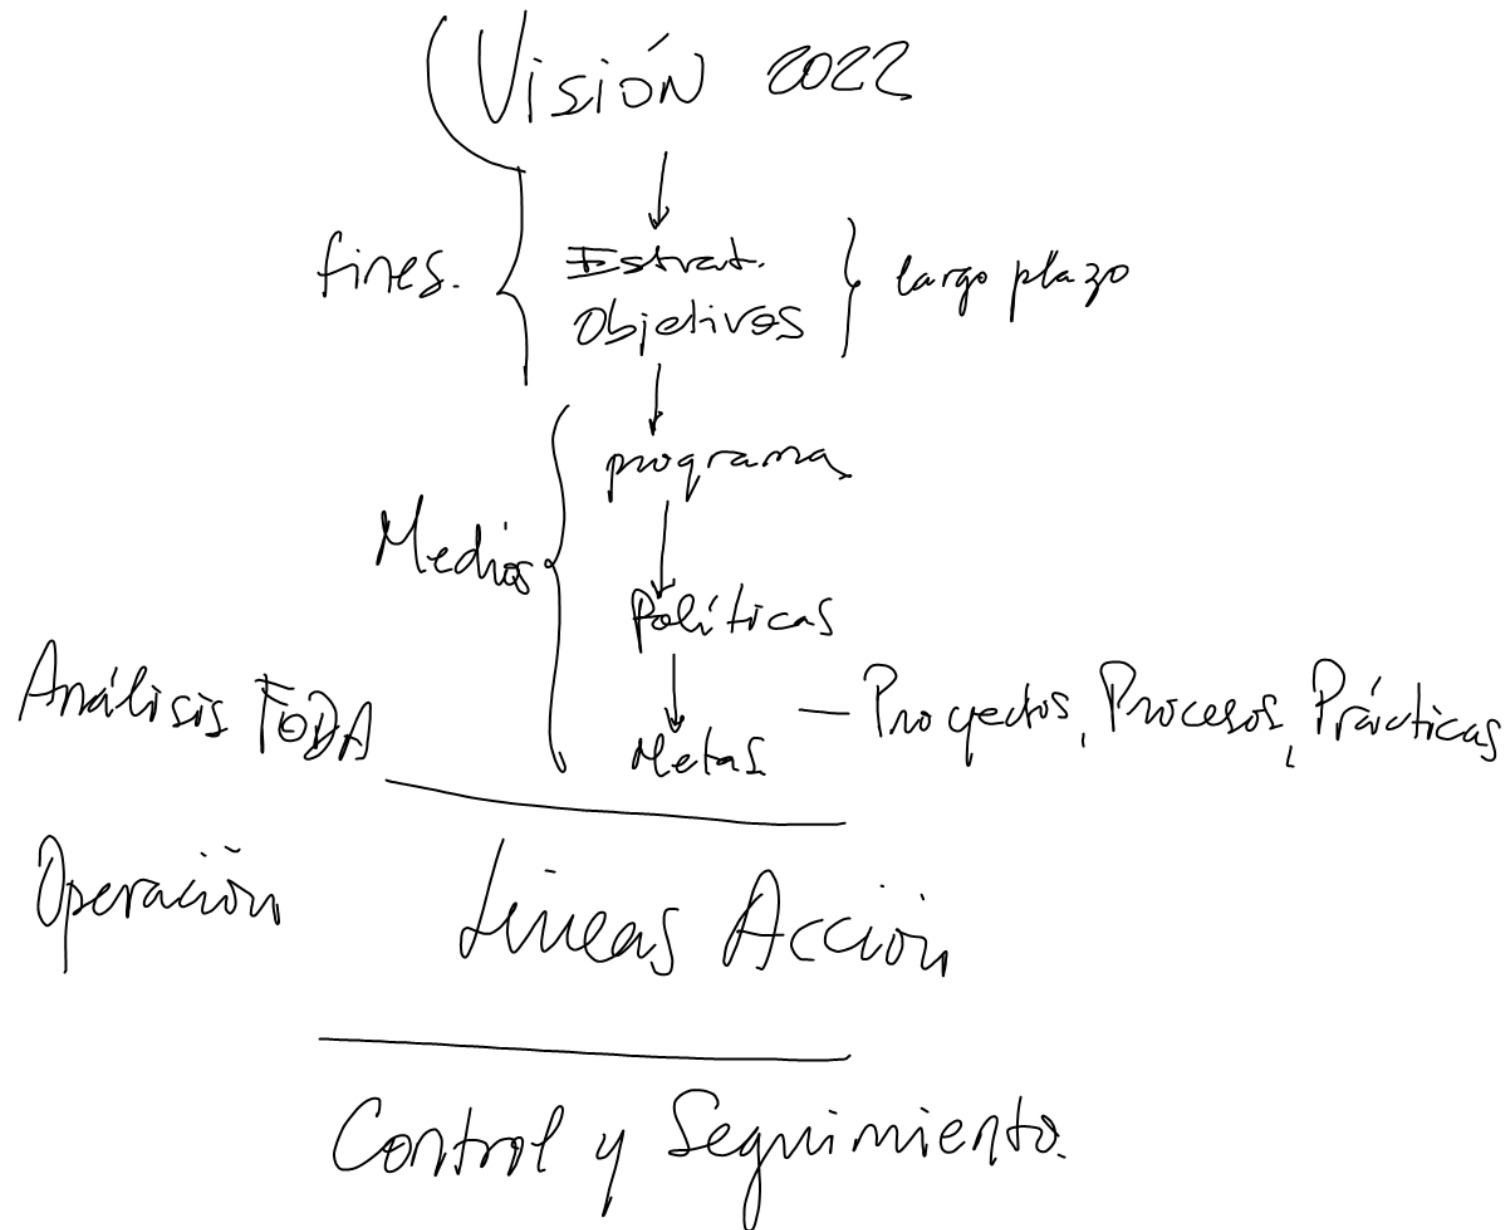 Visión 2022
fines.
Estrat.
Objetivos
largo plazo
programa
Medios
Políticas
Análisis FODA
Metas
— Proyectos, Procesos, Prácticas
Operación
Lineas Acción
Control y Seguimiento.